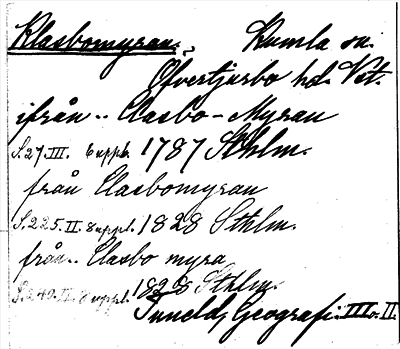 Klasbomyran. Kumla sn.
Öfvertjurbo hd. Vst.
ifrån.. Clasbo-Myran
S. 27. III. 6 uppl. 1787 Sthlm.
från Clasbomyran
S. 225. II. 8 uppl. 1828 Sthlm.
från.. Clasbo myra
S. 240. II. 8 uppl. 1828 Sthlm.
Tuneld, Geografi. III o. II.